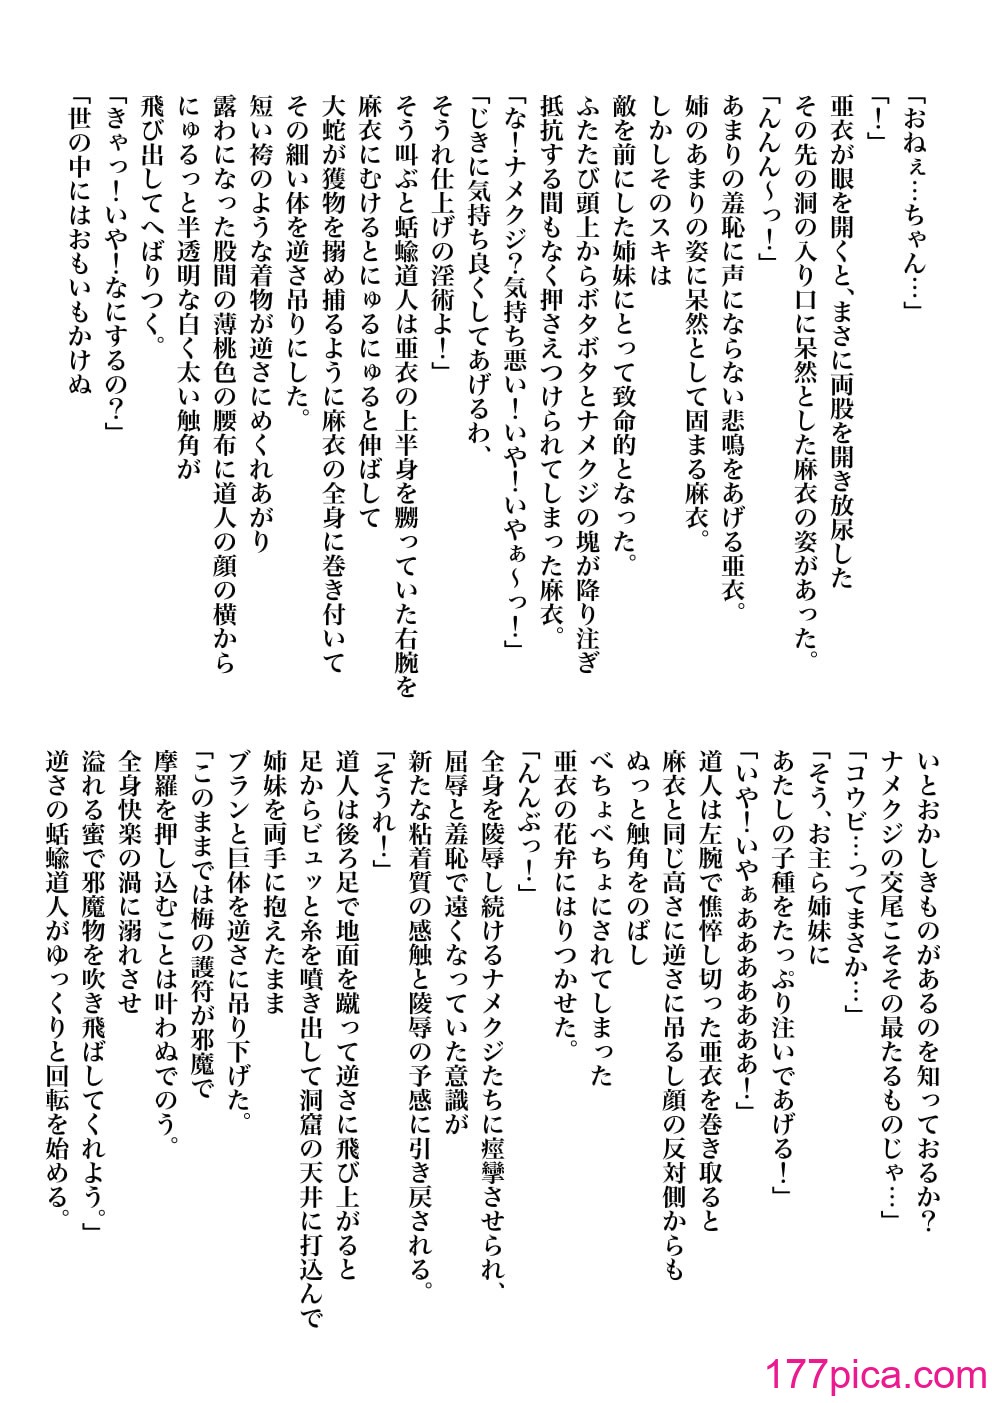 「おねぇ…ちゃん…」
「！」
亜衣が眼を開くと、まさに両股を開き放尿した
その先の洞の入り口に呆然とした麻衣の姿があった。
「んんん～っ！」
あまりの羞恥に声にならない悲鳴をあげる亜衣。
姉のあまりの姿に呆然として固まる麻衣。
しかしそのスキは
敵を前にした姉妹にとって致命的となった。
ふたたび頭上からボタボタとナメクジの塊が降り注ぎ
抵抗する間もなく押さえつけられてしまった麻衣。
「な！ナメクジ？気持ち悪い！いや！いやぁ～っ！」
「じきに気持ち良くしてあげるわ、
そうれ仕上げの淫術よ！」
そう叫ぶと蛞蝓道人は亜衣の上半身を嬲っていた右腕を
麻衣にむけるとにゅるにゅると伸ばして
大蛇が獲物を搦め捕るように麻衣の全身に巻き付いて
その細い体を逆さ吊りにした。
短い袴のような着物が逆さにめくれあがり
露わになった股間の薄桃色の腰布に道人の顔の横から
にゅるっと半透明な白く太い触角が
飛び出してへばりつく。
「きゃっ！いや！なにするの？」
「世の中にはおもいもかけぬ
いとおかしきものがあるのを知っておるか？
ナメクジの交尾こそその最たるものじゃ…」
「コウビ…ってまさか…」
「そう、お主ら姉妹に
あたしの子種をたっぷり注いであげる！」
「いや！いやぁああああああ！」
道人は左腕で憔悴し切った亜衣を巻き取ると
麻衣と同じ高さに逆さに吊るし顔の反対側からも
ぬっと触角をのばし
べちょべちょにされてしまった
亜衣の花弁にはりつかせた。
「んんぶっ！」
全身を陵辱し続けるナメクジたちに痙攣させられ、
屈辱と羞恥で遠くなっていた意識が
新たな粘着質の感触と陵辱の予感に引き戻される。
「そうれ！」
道人は後ろ足で地面を蹴って逆さに飛び上がると
足からビュッと糸を噴き出して洞窟の天井に打込んで
姉妹を両手に抱えたまま
ブランと巨体を逆さに吊り下げた。
「このままでは梅の護符が邪魔で
摩羅を押し込むことは叶わぬでのう。
全身快楽の渦に溺れさせ
溢れる蜜で邪魔物を吹き飛ばしてくれよう。」
逆さの蛞蝓道人がゆっくりと回転を始める。
177pica.com